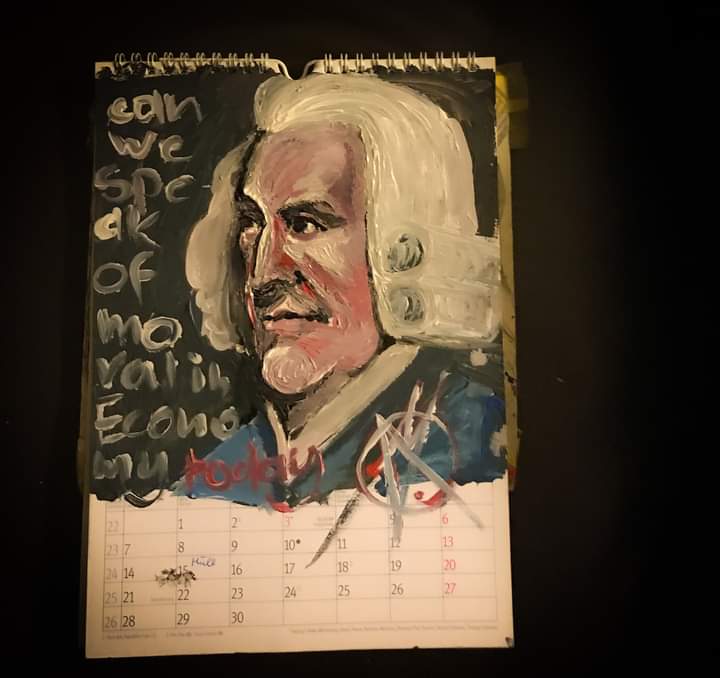 can
we
spe
ak
of
mo
ral in
Econo
my today
22 1 2 3 6
23 7 8 9 10 11 12 13
24 14 15 Müll 16 17 18 19 20
25 21 22 23 24 25 26 27
26 28 29 30